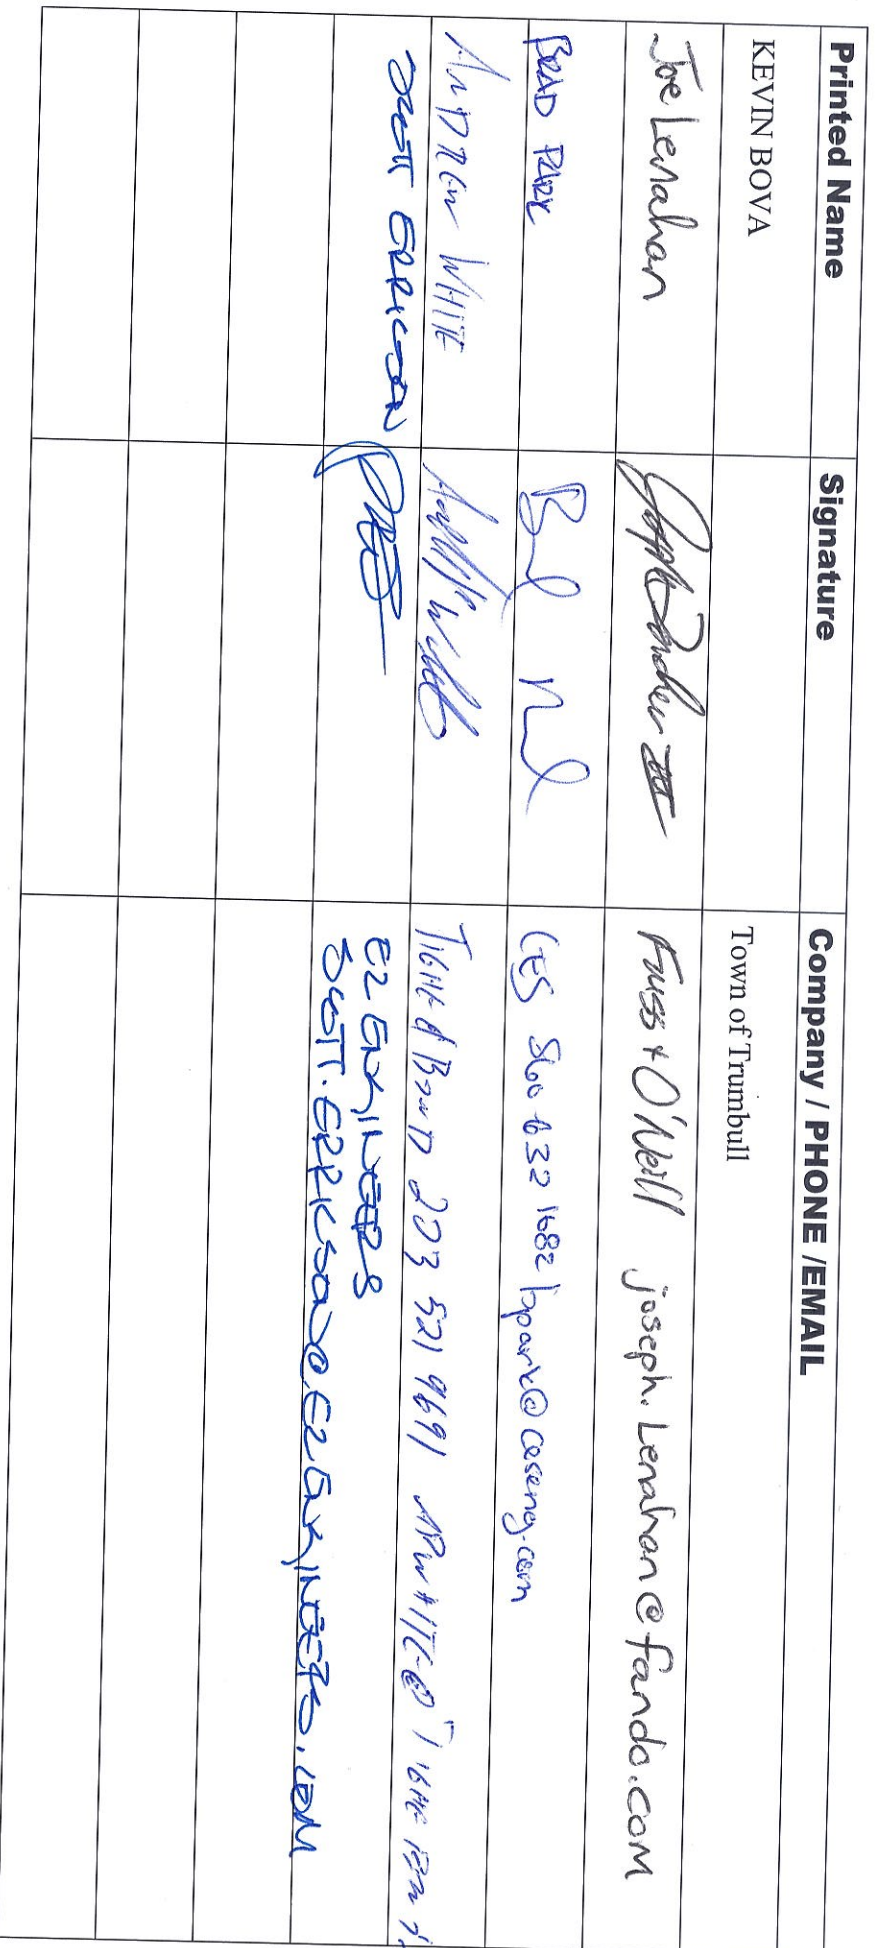 Printed Name Signature Company / PHONE /EMAIL
KEVIN BOVA Town of Trumbull
Joe Lenahan Fuss + O'Neill joseph.Lenahan@fando.com
BRAD PARK CES 860 632 1682 bpark@ceseng.com
ANDREW WHITE TIGHE & BOND 203 521 9691 APWHITE@TIGHEBOND.
SCOTT ERRICSON E2 ENGINEERS
SCOTT.ERRICSON@E2ENGINEERS.COM